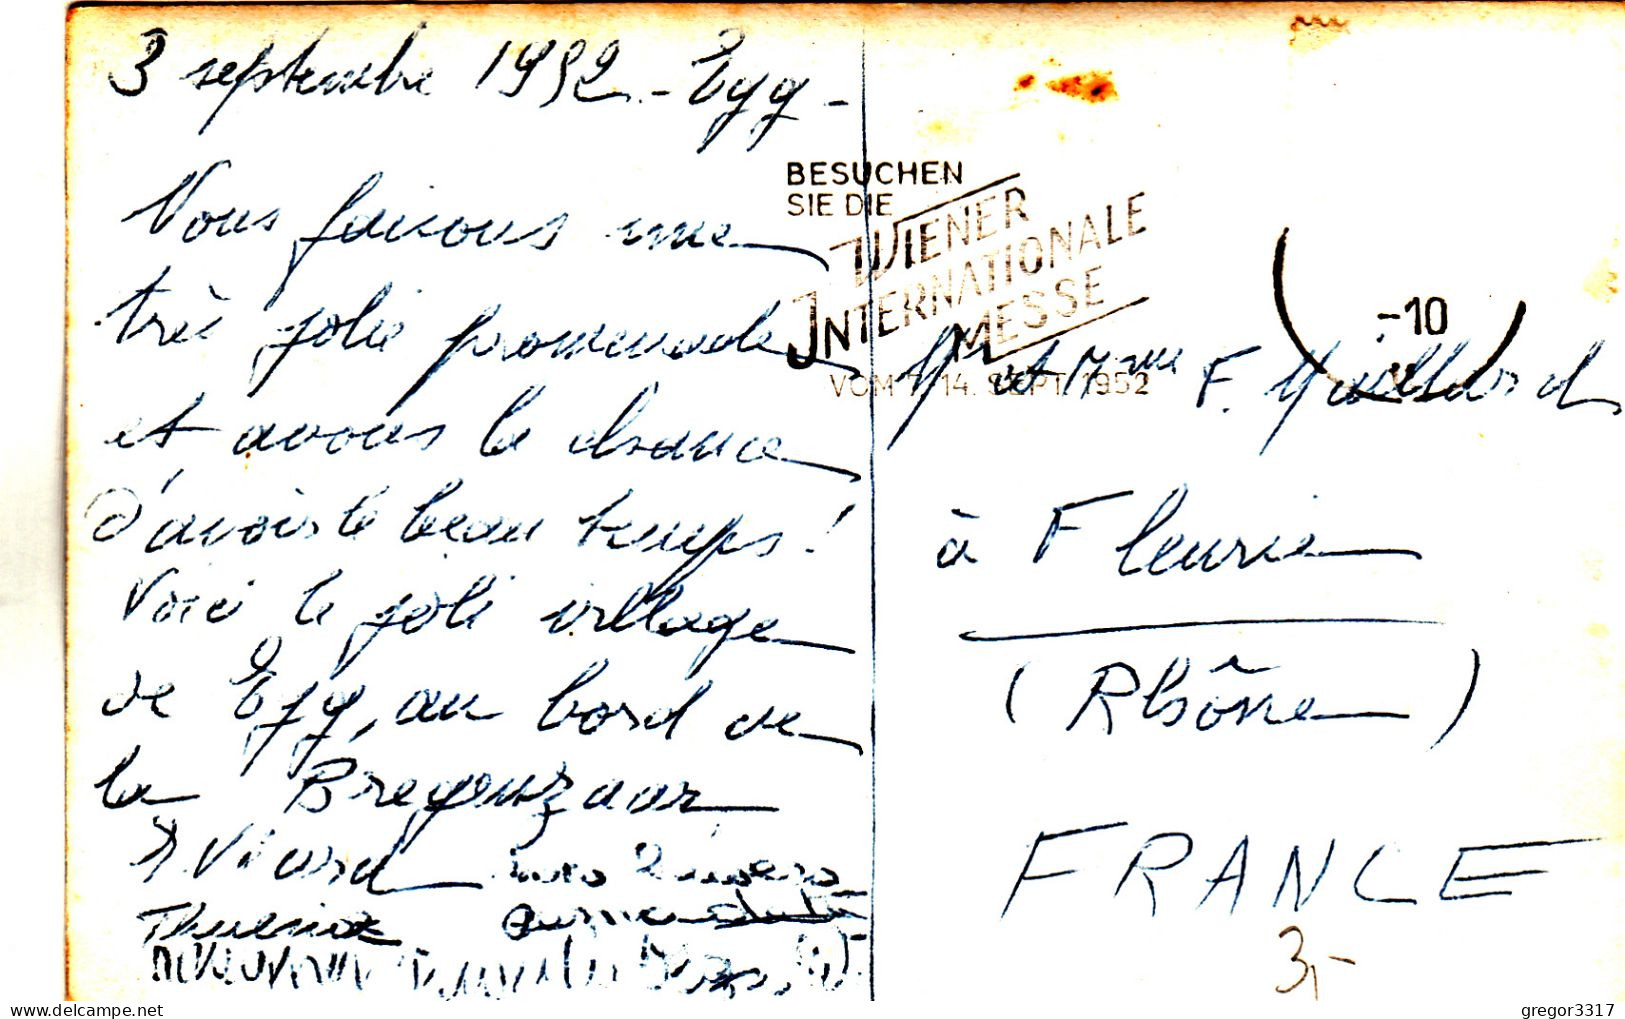 3 septembre 1952. - Egg -
Nous faisons une
très jolie promenade
et avons la chance
d'avoir le beau temps!
Voici le joli village
de Egg, au bord de
la Bregenzaar
Viard
BESUCHEN
SIE DIE
WIENER
INTERNATIONALE
MESSE
VOM 7.-14. SEPT. 1952
-10
Mr et Mme F. Maillard
à Fleurie
(Rhône)
FRANCE
3,-
delcampe.net
gregor3317